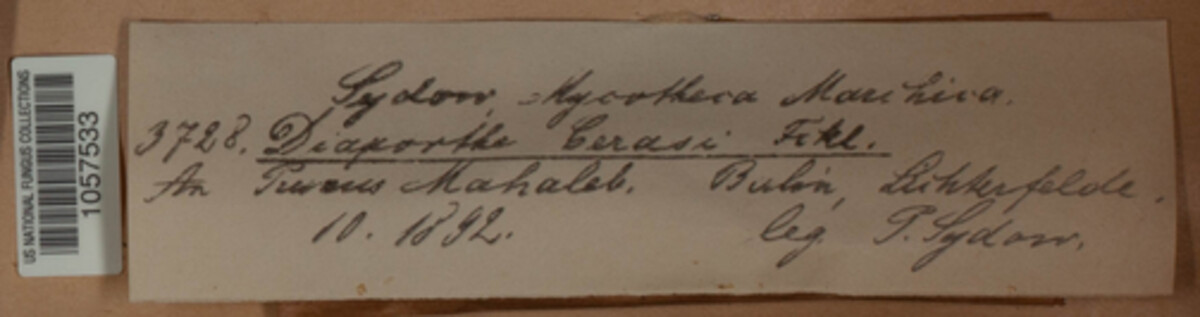 US NATIONAL FUNGUS COLLECTIONS
1057533
Sydow, Mycotheca Marchica.
3728. Diaporthe Cerasi Fckl.
An Prunus Mahaleb. Berlin, Lichterfelde.
10. 1892. leg. P. Sydow.